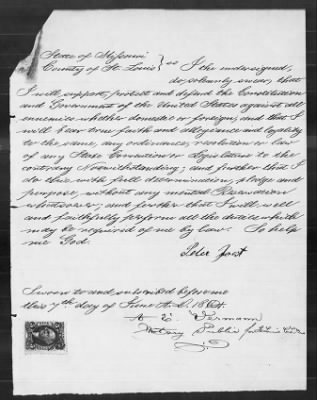 State of Missouri
County of St. Louis } ss I the undersigned,
do solemnly swear, that
I will support, protect and defend the Constitution
and Government of the United States against all
enemies whether domestic or foreign; and that I
will bear true faith and allegiance and loyalty
to the same, any ordinance, resolution or law
of any State Convention or Legislature to the
contrary Notwithstanding; and further that I
do this with full determination, pledge and
purpose, without any mental Reservation
whatsoever; and further that I will well
and faithfully perform all the duties which
may be required of me by law. So help
me God.
Peter Joest
Sworn to and subscribed before me
this 7th day of June A.D. 1864.
Vermann
Notary Public